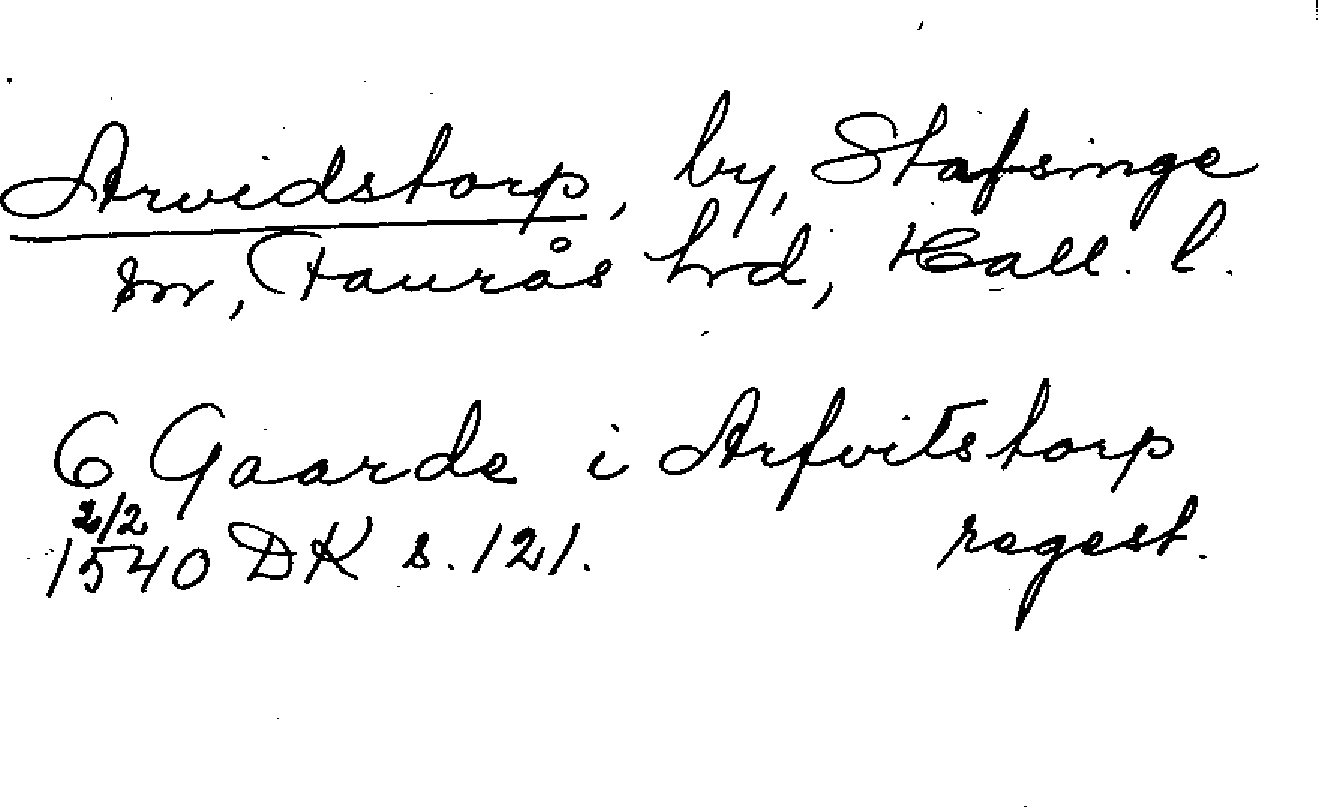 Arvidstorp, by, Stafsinge
sn, Faurås hrd, Hall. l.
6 Gaarde i Arfvitstorp
2/2
1540 DK s. 121. regest.